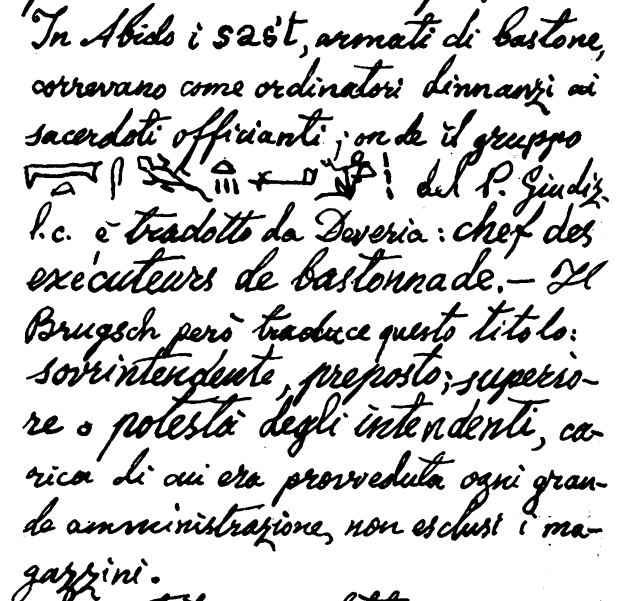 In Abido i sašt, armati di bastone,
correvano come ordinatori dinnanzi ai
sacerdoti officianti; onde il gruppo
del P. Giudiz.
l.c. è tradotto da Deveria: chef des
exécuteurs de bastonnade. — Il
Brugsch però traduce questo titolo:
sovrintendente, preposto; superio-
re o potestà degli intendenti, ca-
rica di cui era provveduta ogni gran-
de amministrazione, non esclusi i ma-
gazzini.